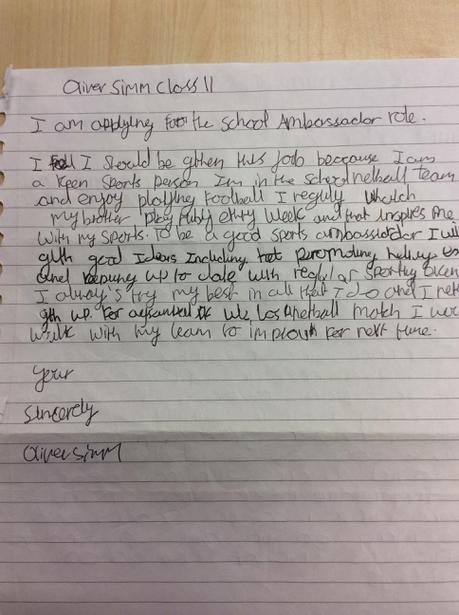 Oliver Simm Class 11
I am applying for the School Ambassador role.
I feel I should be githen this job becquse I am
a keen sports person Im in the school netball team
and enjoy plaffing football I reguly whatch
my brother play rugby evry week and that inspires me
with my sports. To be a good sports ambassardor I will
gith good Ideas Including hot peromoting helthy
and keeping up to date with regular sporting
I always try my best in all that I do and I
gith up. For if we los netball match I
with my team to improuh for next time.
your
sincerely
Oliver Simm